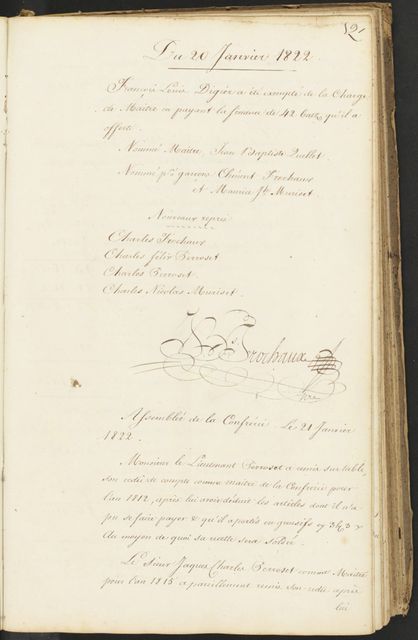 52
Du 20 Janvier 1822.
François Louis Digier a été exempté de la Charge
de Maitre en payant la finance de 42 batz qu'il a
offerte.
Nommé Maitre, Jean Baptiste Quellet.
Nommé pr. garcons Clément Frochaux
et Maurice Jb. Muriset.
Nouveaux repris
Charles Frochaux
Charles félix Perroset
Charles Perroset.
Charles Nicolas Muriset.
Frochaux
Assemblée de la Confrérie. Le 21 Janvier
1822.
Monsieur le Lieutenant Perroset a remis sur table,
son redû de compte comme maitre de la Confrérie pour
l'an 1812, après lui avoir déduit les articles dont il n'a
pu se faire payer & qu'il a portés en
Au moyen de quoi sa cotte sera soldée.
Le Sieur Jaques Charles Perroset comme Maitre
pour l'an 1815 a pareillement remis son redû après
lui